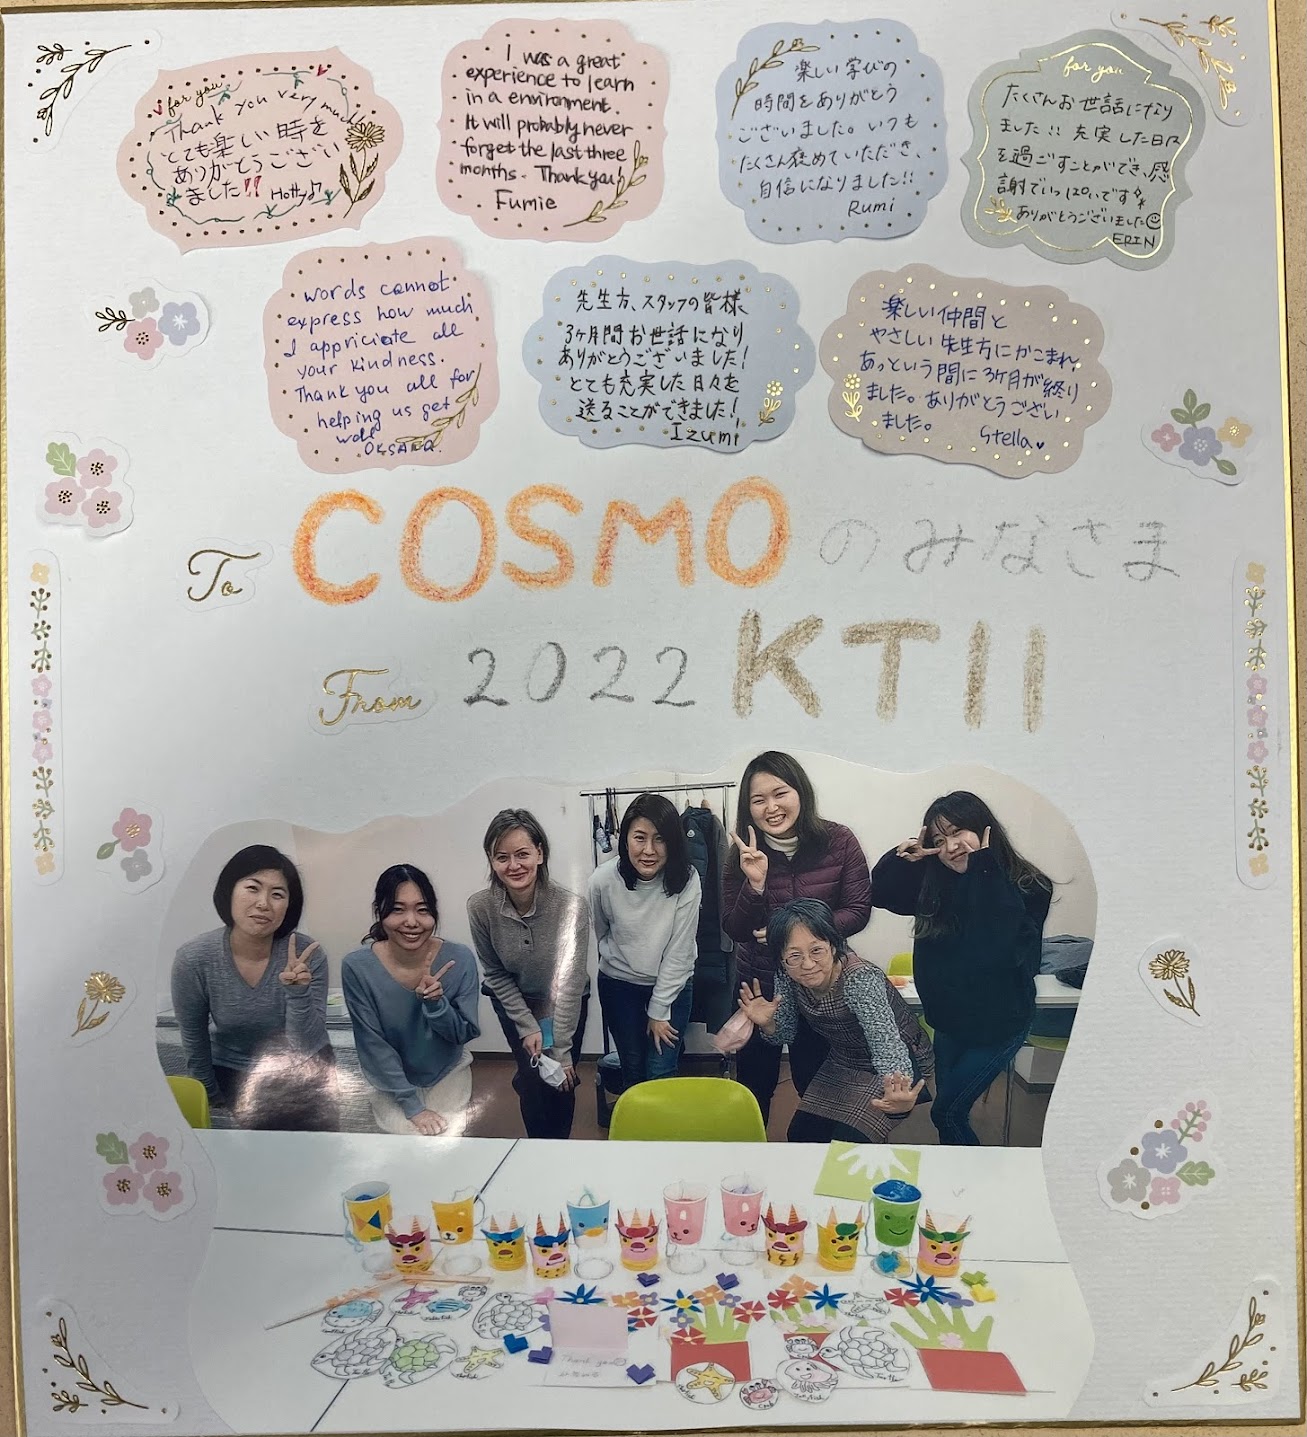 for you
Thank you very much
とても楽しい時を
ありがとうござい
ました!! Hotty♪
I was a great
experience to learn
in a environment.
It will probably never
forget the last three
months. Thank you!
Fumie
楽しい学びの
時間をありがとう
ございました。いつも
たくさん褒めていただき、
自信になりました!!
Rumi
for you
たくさんお世話になり
ました!! 充実した日々
を過ごすことができ、感
謝でいっぱいです
ありがとうございました☺
ERIN
words cannot
express how much
I appriciate all
your kindness.
Thank you all for
helping us get
well
OKSANA.
先生方、スタッフの皆様
3ヶ月間お世話になり
ありがとうございました!
とても充実した日々を
送ることができました!
Izumi
楽しい仲間と
やさしい先生方にかこまれ
あっという間に3ヶ月が終り
ました。ありがとうござい
ました。 Stella♥
To COSMOのみなさま
From 2022 KT11
Thank you☺